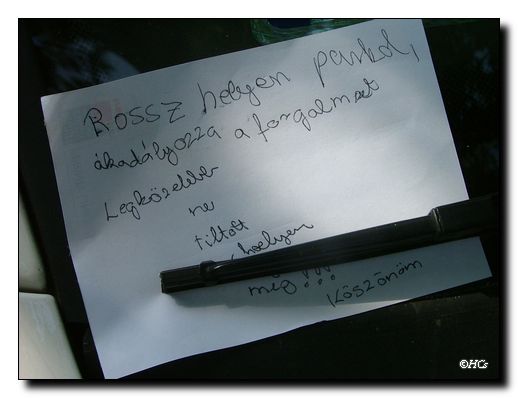 Rossz helyen parkol,
akadályozza a forgalmat
Legközelebb
ne
tiltott
helyen
meg!!!
Köszönöm
©HCs